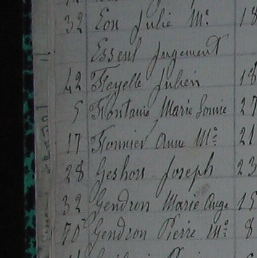 32 Eon Julie Mie 18
Esseul Jugement
42 Feyelle Julien 18
5 Fontaine Marie Louise 27
17 Fonnier Anne Mie 21
28 Geshors Joseph 23
32 Gendron Marie Ange 15
70 Gendron Pierre Me 8